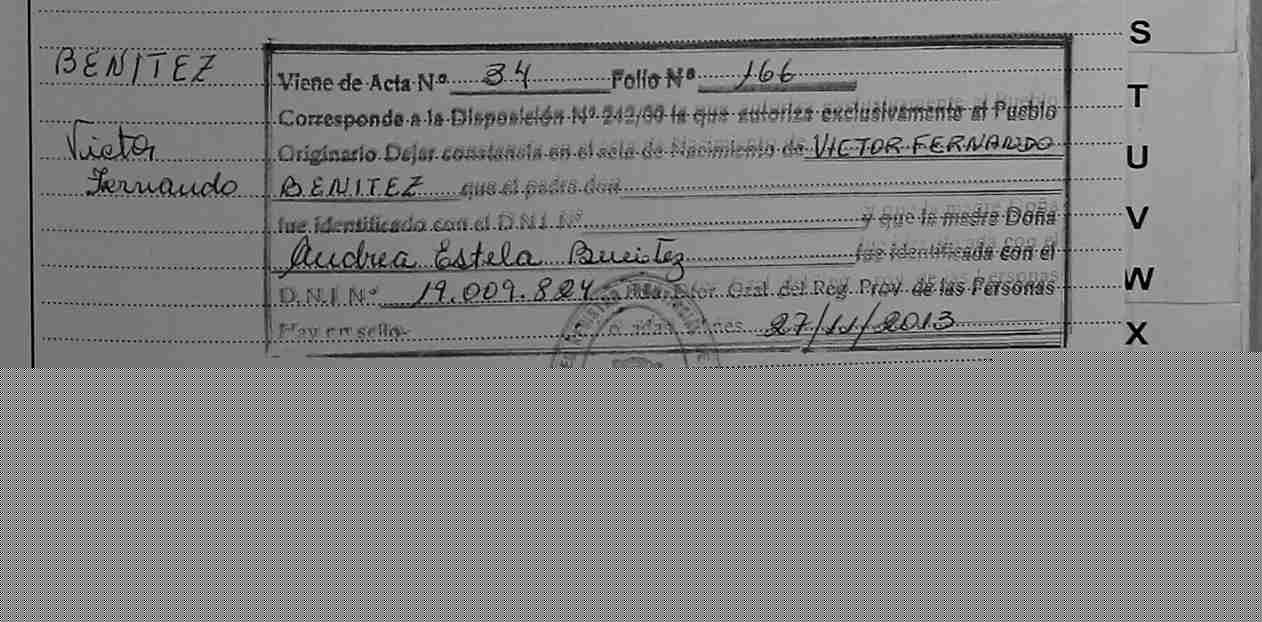 BENITEZ
Victor
Fernando
Viene de Acta Nº 34 Folio Nº 166
Corresponde a la Disposición Nº 242/00 la que autoriza exclusivamente al Pueblo
Originario Dejar constancia en el acta de Nacimiento de VICTOR FERNANDO
BENITEZ que el padre don
fue identificado con el D.N.I. Nº y que la madre Doña
Andrea Estela Benitez fue identificada con el
D.N.I. Nº 19.009.824 Gral. del Reg. Prov. de las Personas
Hay en sello- 27/11/2013
S
T
U
V
W
X